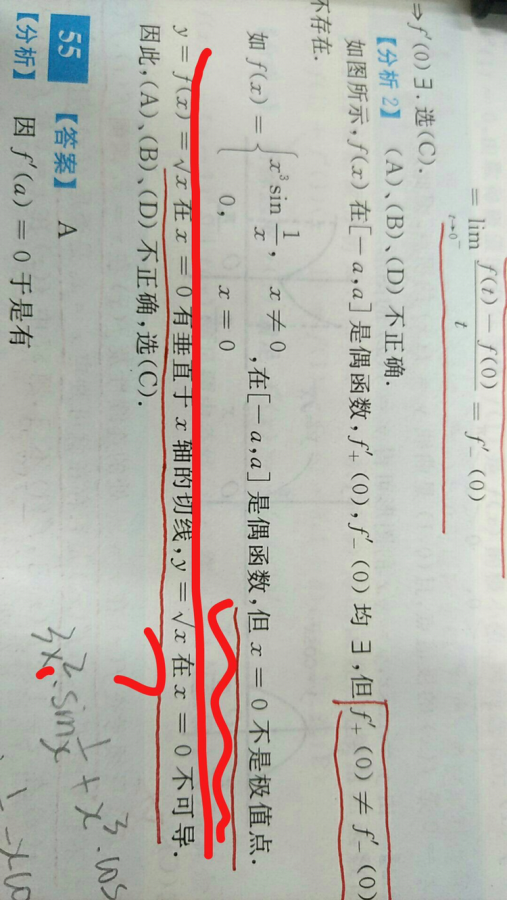 = lim_{t→0⁻} (f(t) − f(0))/t = f′₋(0)
⇒f′(0)∃. 选(C).
【分析 2】 (A)、(B)、(D) 不正确.
如图所示, f(x) 在[−a,a] 是偶函数, f′₊(0), f′₋(0) 均 ∃, 但 f′₊(0) ≠ f′₋(0)
不存在.
如 f(x) = { x³ sin 1/x, x ≠ 0
0, x = 0
, 在[−a,a] 是偶函数, 但 x = 0 不是极值点.
y = f(x) = √x 在 x = 0 有垂直于 x 轴的切线, y = √x 在 x = 0 不可导.
因此, (A)、(B)、(D) 不正确, 选(C).
55 【答案】 A
【分析】 因 f′(a) = 0 于是有
3x²·sin 1/x + x³·cos